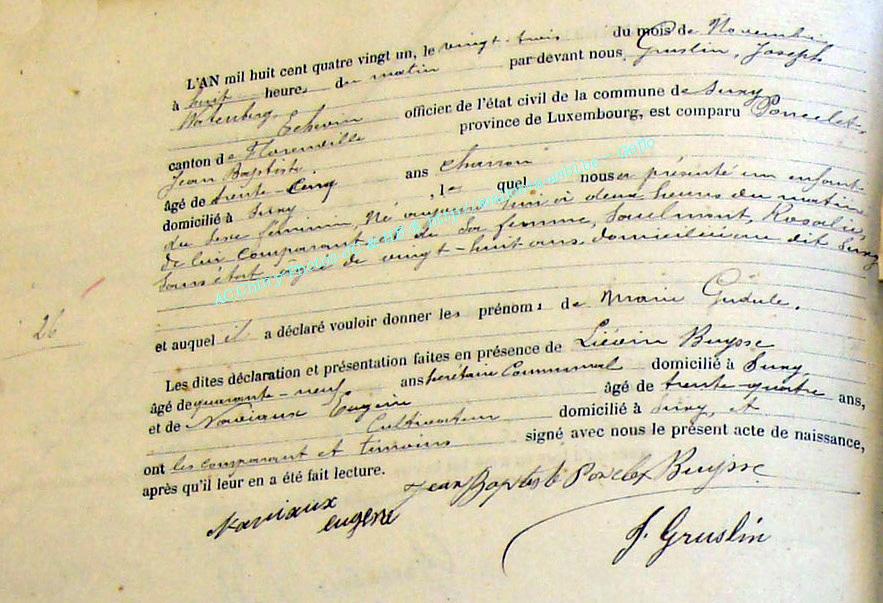 L'AN mil huit cent quatre vingt un, le vingt-trois du mois de Novembre
à huit heures du matin par devant nous Gruslin, Joseph
Echevin officier de l'état civil de la commune de Suxy
canton de Florenville province de Luxembourg, est comparu Poncelet,
Jean Baptiste
âgé de trente-cinq ans charron
domicilié à Suxy, lequel nous a présenté un enfant
du sexe féminin, né aujourd'hui à deux heures du matin
de lui comparant et de sa femme, Soulmont, Rosalie,
sans état âgée de vingt-huit ans, domiciliée au dit Suxy
et auquel il a déclaré vouloir donner les prénoms de Marie Gudule.
Les dites déclaration et présentation faites en présence de Liévin Buysse
âgé de quarante-neuf ans secrétaire communal domicilié à Suxy
et de Naviaux Eugène âgé de trente-quatre ans,
Cultivateur domicilié à Suxy, et
ont les comparant et témoins signé avec nous le présent acte de naissance,
après qu'il leur en a été fait lecture.
26
Naviaux eugene
Jean Baptiste Poncelet Buysse
J. Gruslin